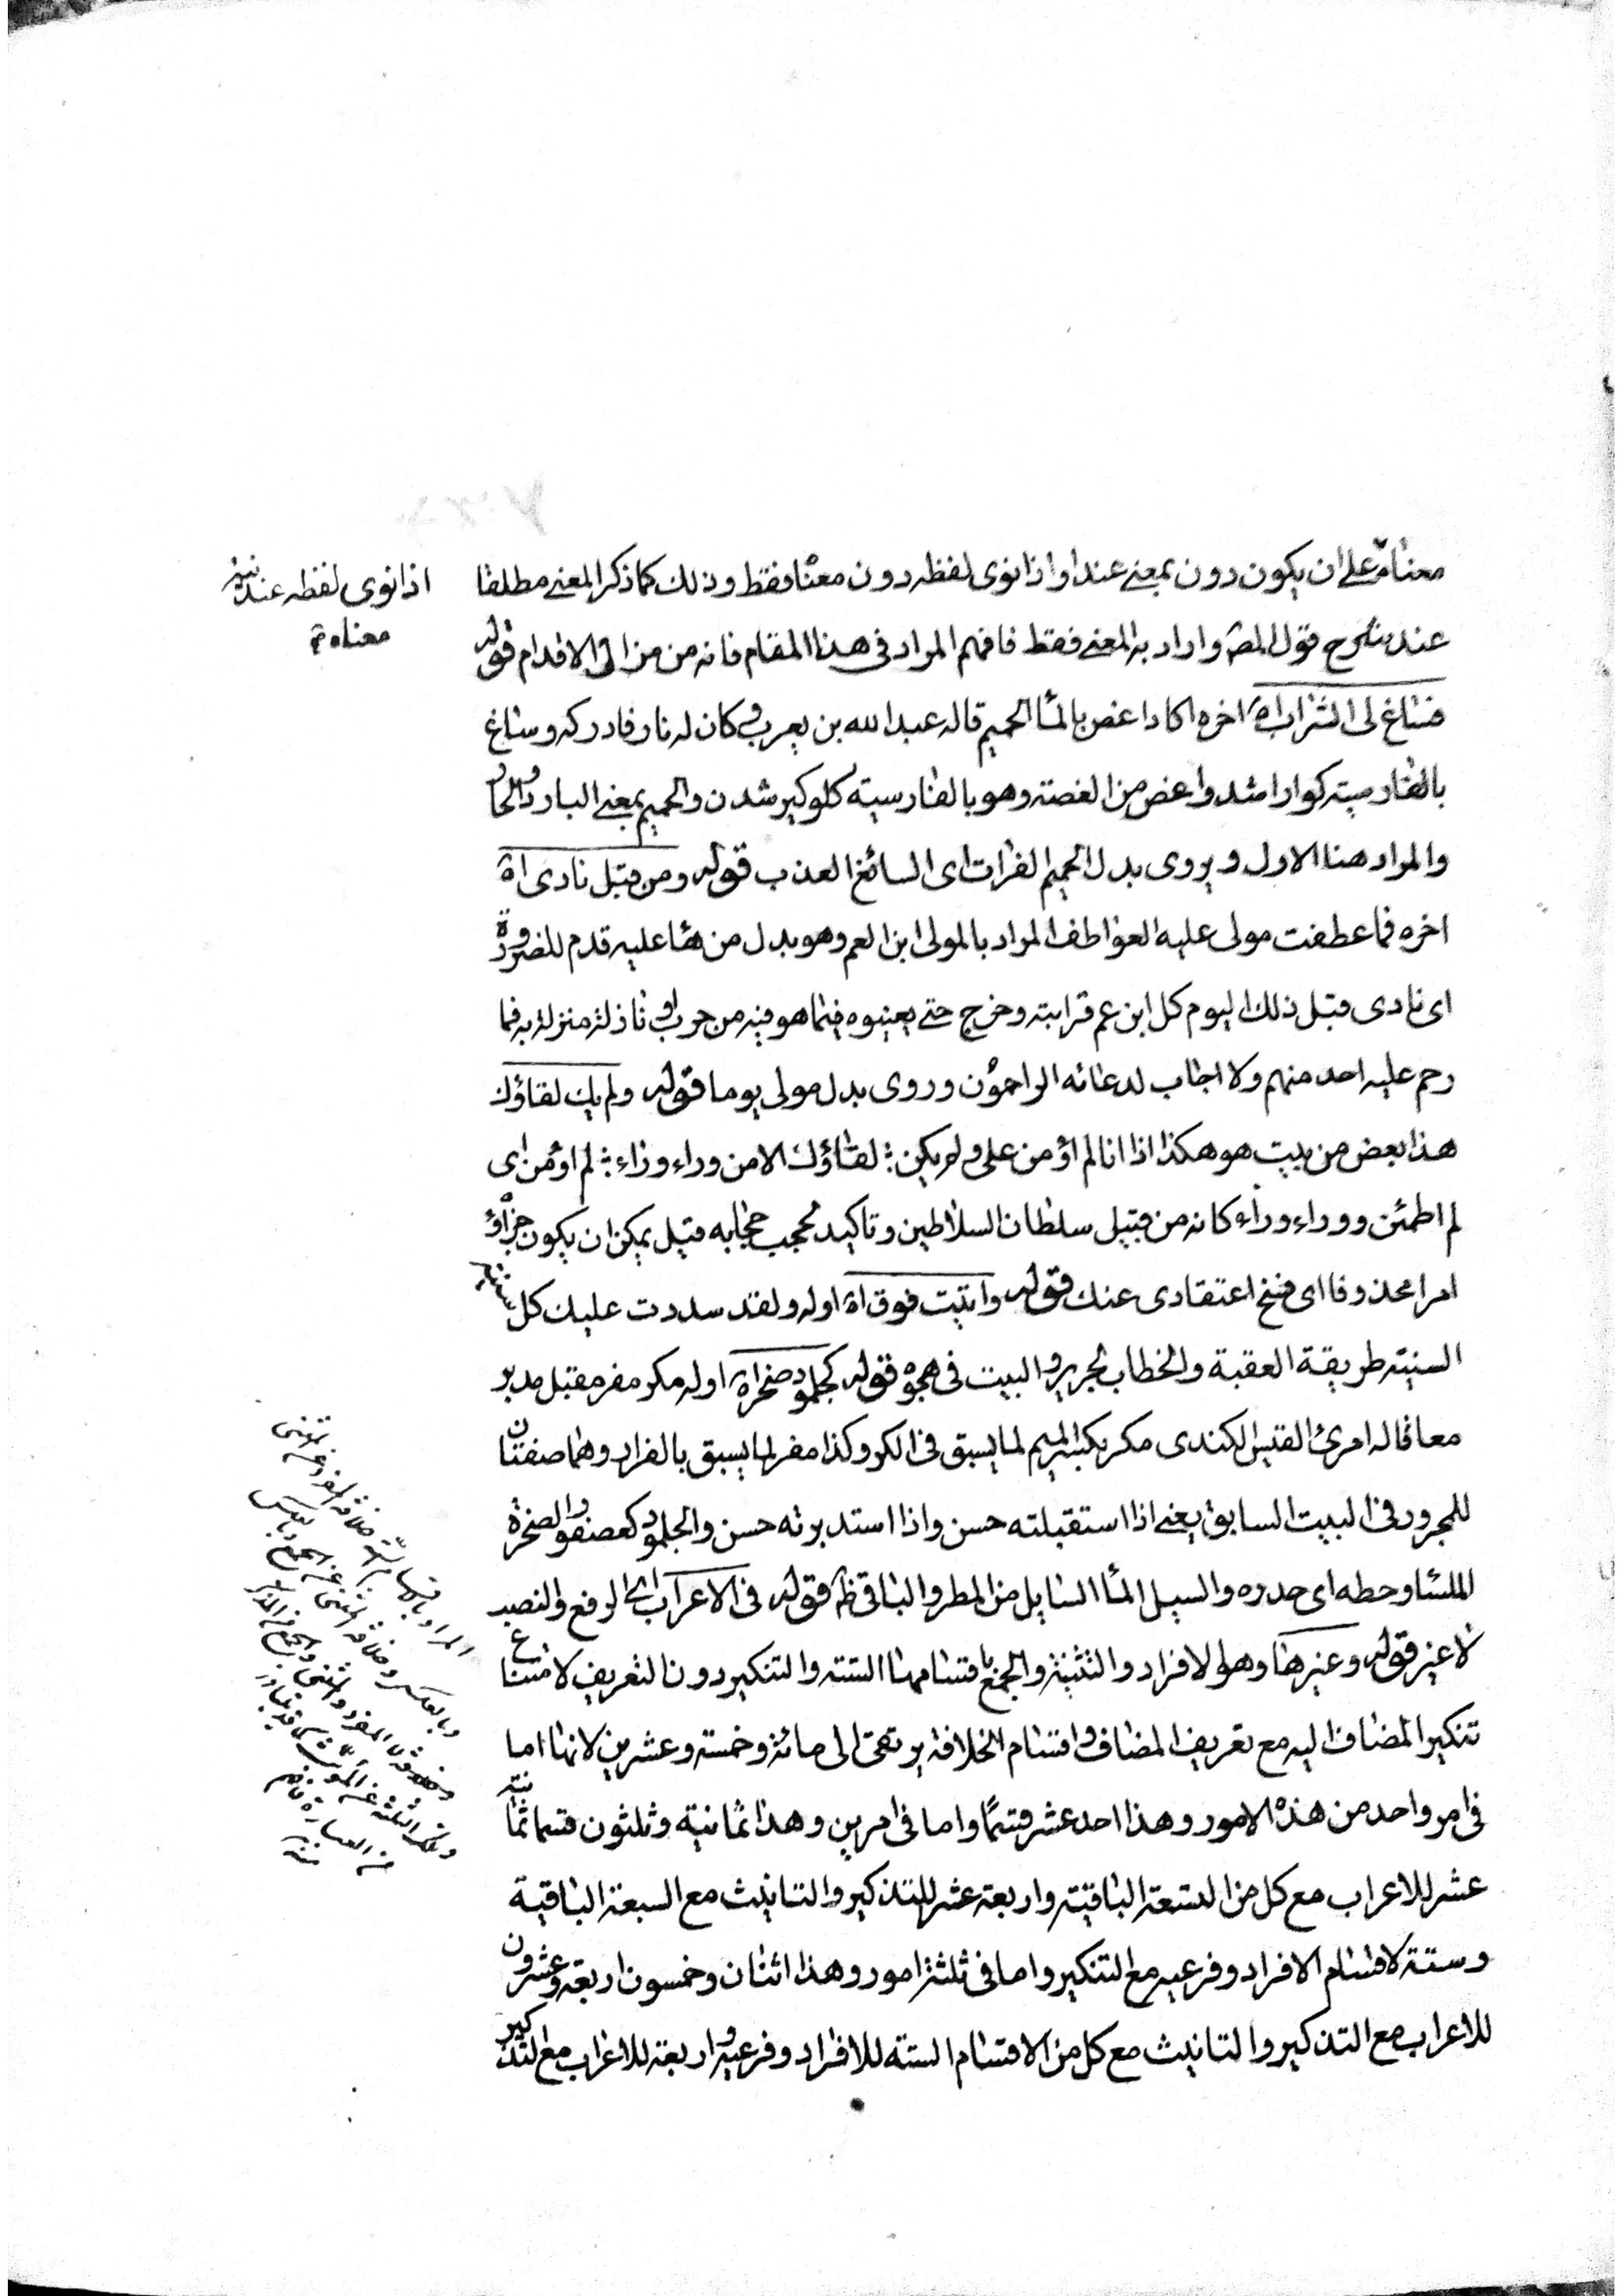 معناه على ان يكون دون بمعنى عند او اذا نوى لفظه دون معناه فقط وذلك كما ذكر المعنى مطلقا
عند شرح قول المصه واراد به المعنى فقط فافهم المراد فى هذا المقام فانه من مزالق الاقدام قوله
فساغ لى الشراب اه اخره اكاد اغص بالماء الحميم قاله عبد الله بن يعرب وكان له ثار فادركه وساغ
بالفارسية كوارا شد واغص من الغصة وهو بالفارسية كلوكير شدن والحميم بمعنى البارد والحار
والمراد هنا الاول ويروى بدل الحميم الفرات اى السائغ العذب قوله ومن قبل نادى اه
اخره فما عطفت مولى عليه العواطف المراد بالمولى ابن العم وهو بدل من هاء عليه قدم للضرورة
اى نادى قبل ذلك اليوم كل ابن عم قرابته وخرج حتى يعينوه فيما هو فيه من حرب او نازلة منزلة به فما
رحم عليه احد منهم ولا اجاب لدعائه الراحمون وروى بدل مولى يوما قوله ولم يك لقاؤك
هذا بعض من بيت هو هكذا اذا انا لم اؤمن على ولم يكن ؛ لقاؤك الا من وراء وراء ؛ لم اؤمن اى
لم اطمئن ووراء وراء كانه من قبيل سلطان السلاطين وتاكيد لحجب حجابه قيل يمكن ان يكون جزاؤه
امرا محذوفا اى فسخ اعتقادى عنك قوله واتيت فوق اه اوله ولقد سددت عليك كل ثنية
السنية طريقة العقبة والخطاب لجرير والبيت فى هجوه قوله كجلمود صخر اه اوله مكر مفر مقبل مدبر
معا قاله امرئ القيس الكندى مكر بكسر الميم لما يسبق فى الكر وكذا مفر لما يسبق بالفرار وهما صفتان
للمجرور فى البيت السابق يعنى اذا استقبلته حسن واذا استدبرته حسن والجلمود كعصفور الصخرة
الملساء وحطه اى حدره والسيل الماء السايل من المطر والباقى ظه قوله فى الاعراب اى الرفع والنصب
لا غير قوله وغيرها وهو الافراد والتثنية والجمع باقسامها الستة والتنكير دون التعريف لامتناع
تنكير المضاف اليه مع تعريف المضاف واقسام الخلافة يرتقى الى مائة وخمسة وعشرين لانها اما
فى امر واحد من هذه الامور وهذا احد عشر قسمًا واما فى امرين وهذا ثمانية وثلثون قسما ثمانية
عشر للاعراب مع كل من التسعة الباقية واربعة عشر للتذكير والتانيث مع السبعة الباقية
وستة لاقسام الافراد وفرعيه مع التنكير واما فى ثلثة امور وهذا اثنان وخمسون اربعة وعشرون
للاعراب مع التذكير والتانيث مع كل من الاقسام الستة للافراد وفرعيه واربعة للاعراب مع التذكير
اذا نوى لفظه عند
معناه